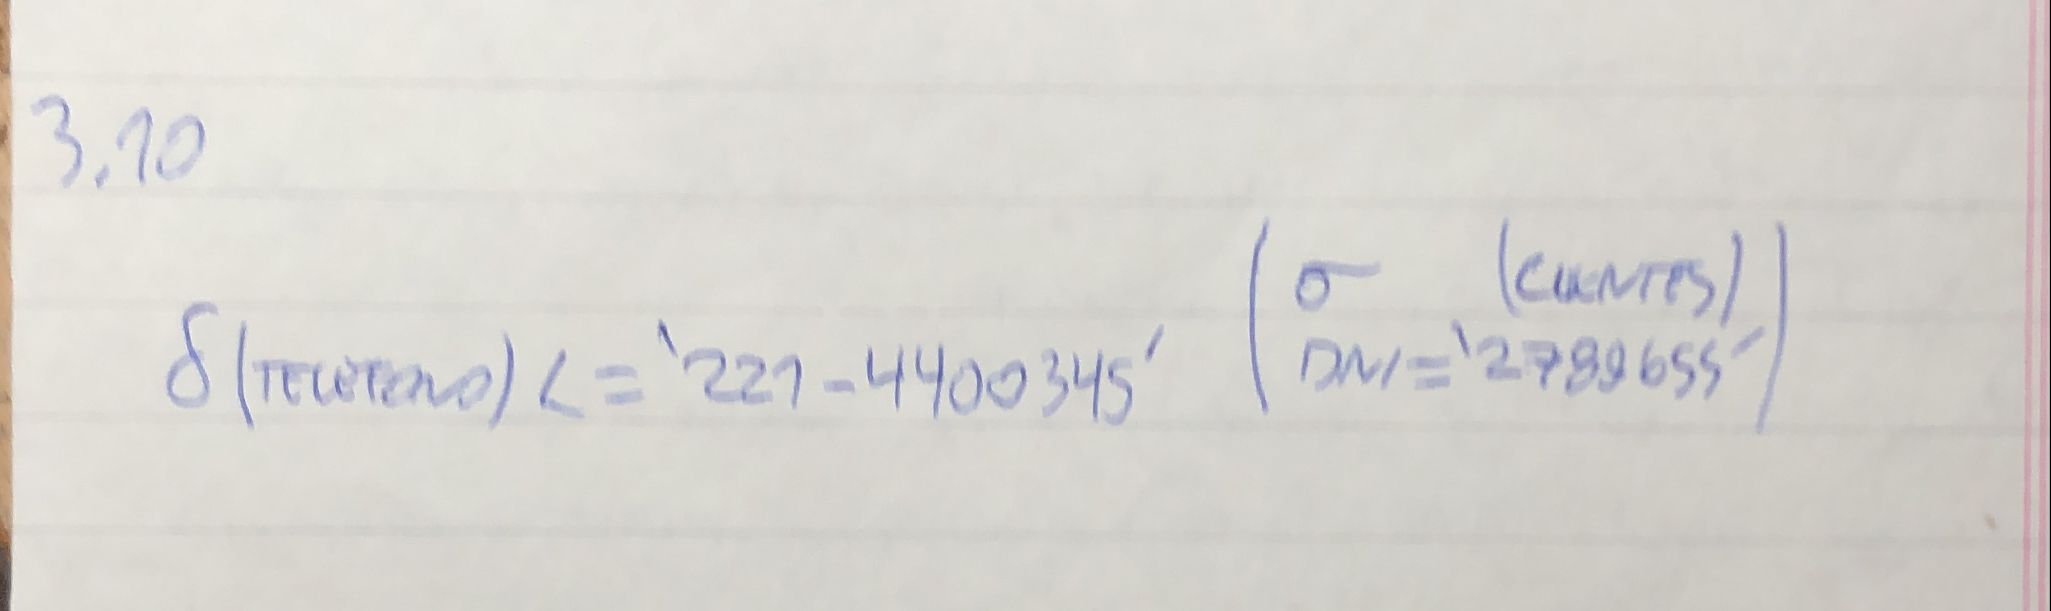 3.10
δ(TELEFONO) <= '221-4400345' (σ DNI='2789655' (CLIENTES))